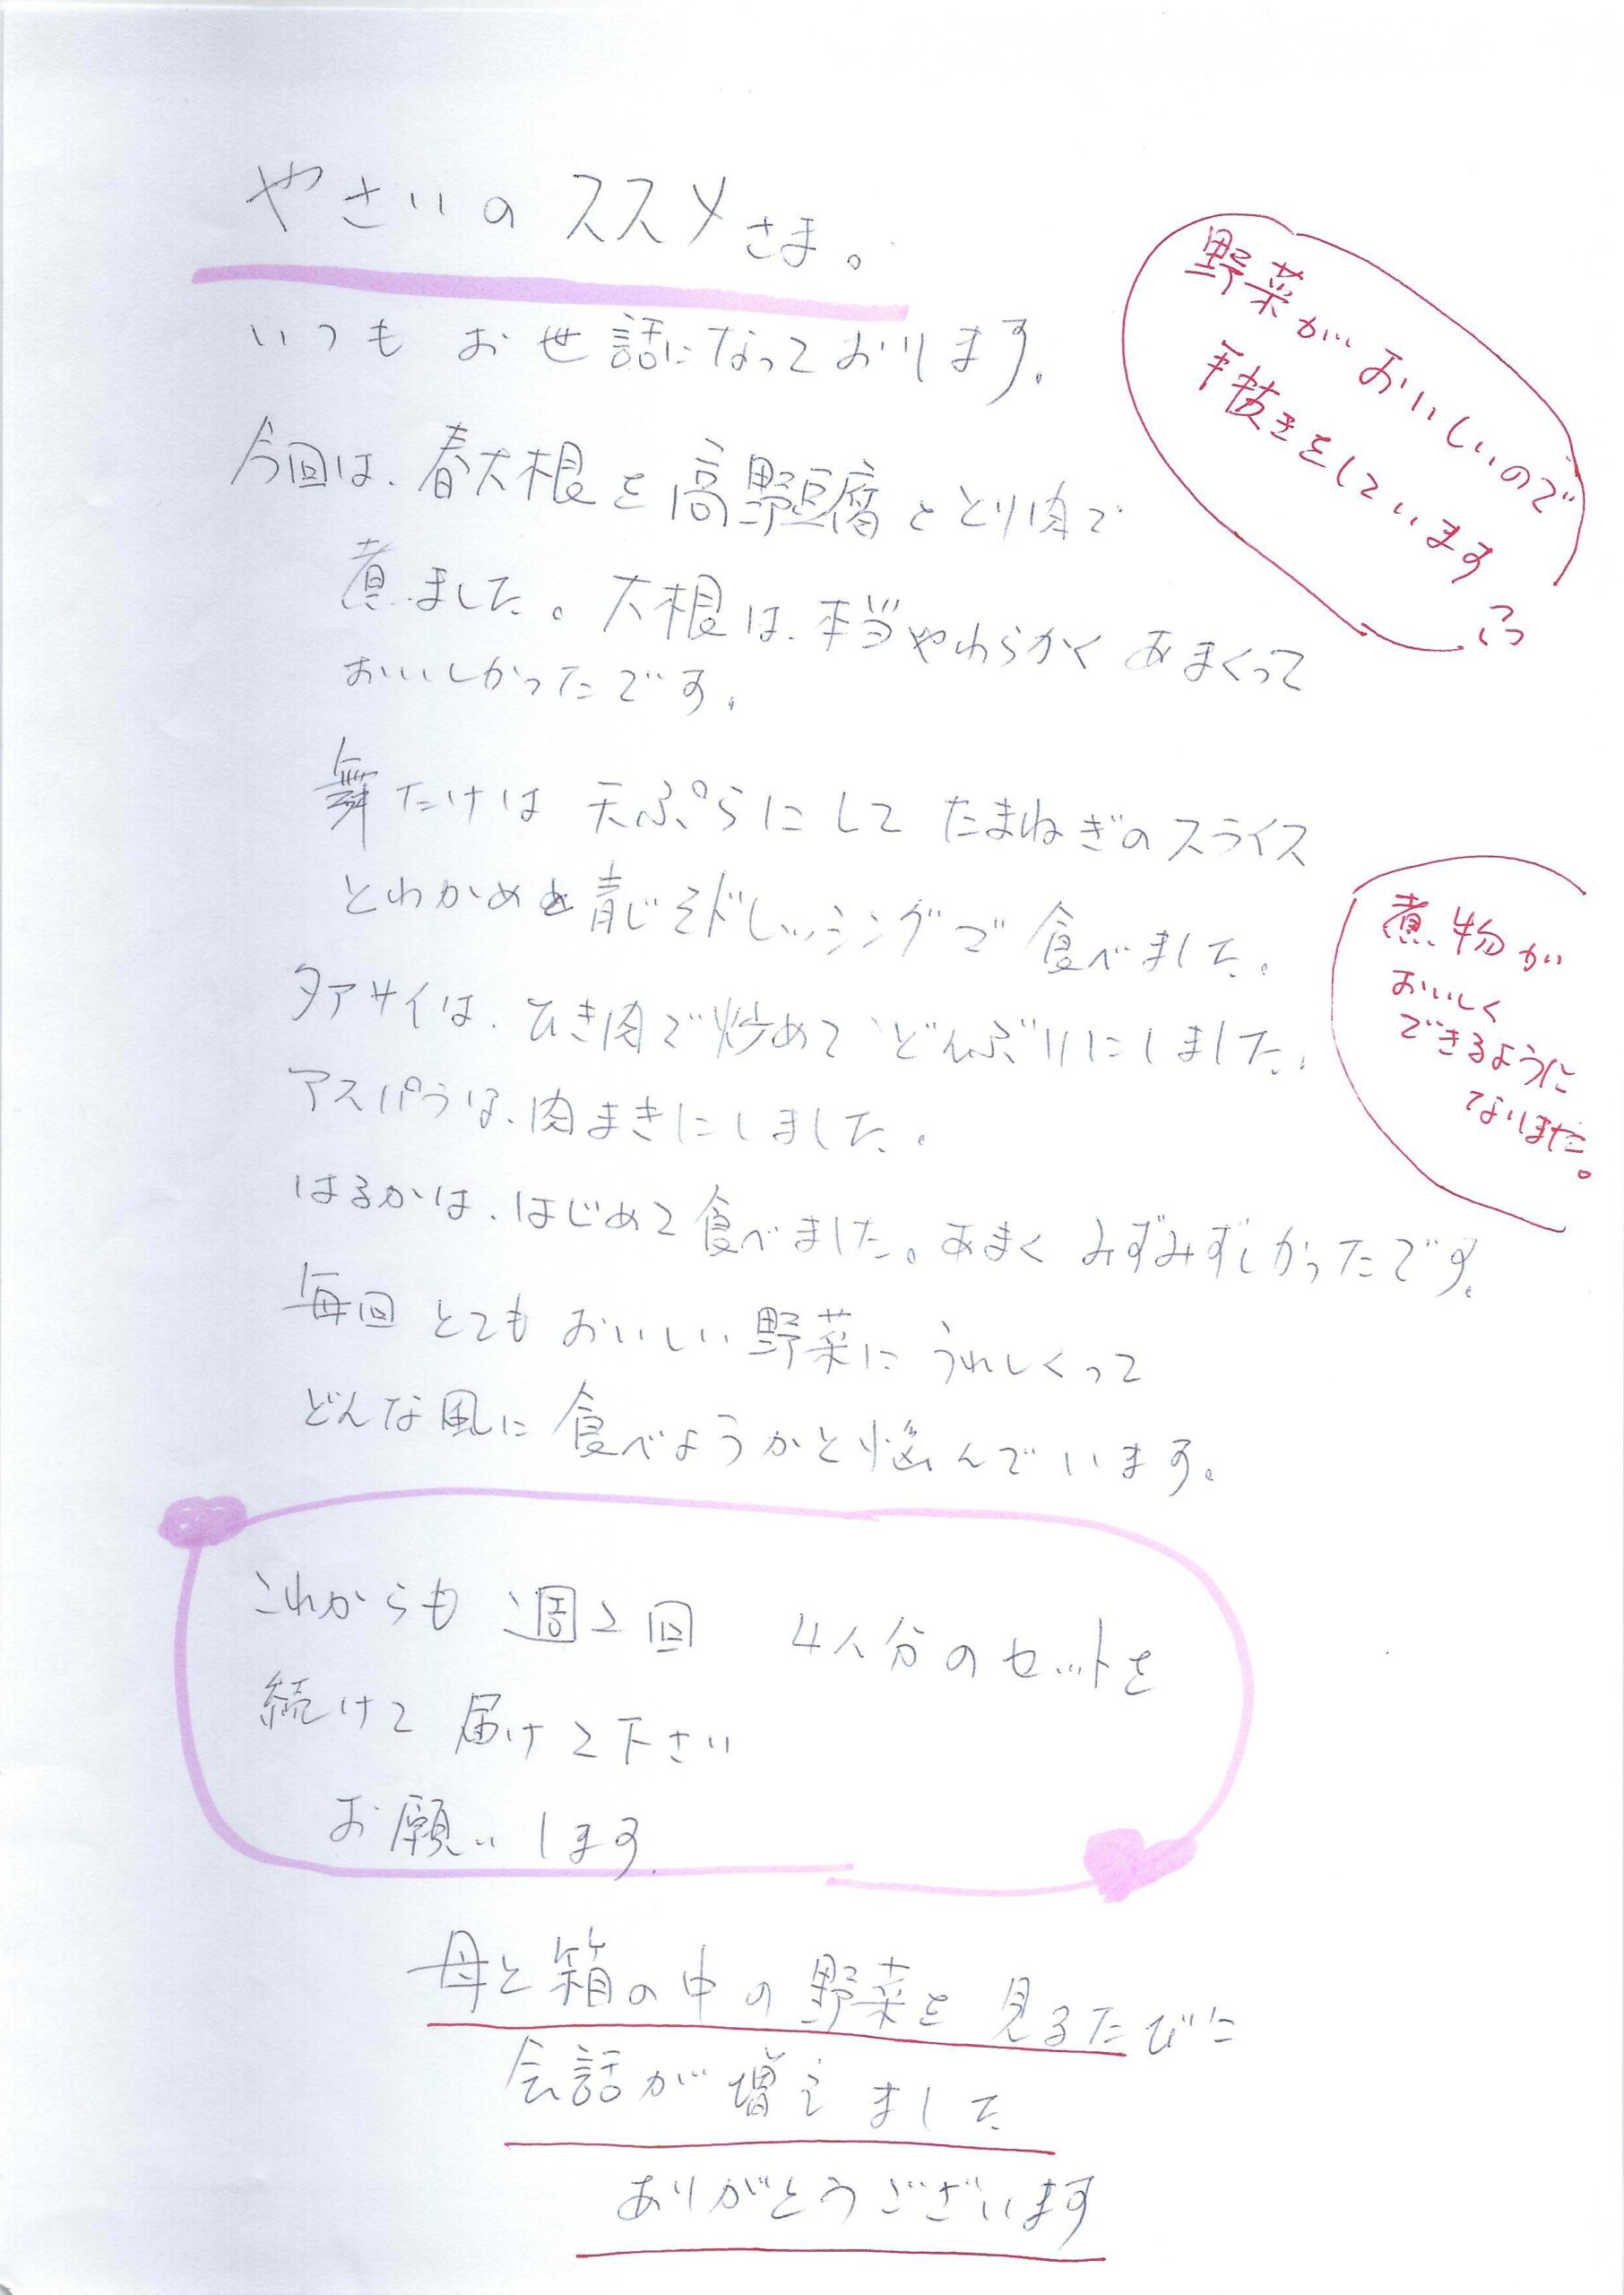 やさいのススメさま。
いつも お世話になっております。
今回は、春大根を高野豆腐ととり肉で
煮ました。大根は、本当やわらかく あまくって
おいしかったです。
舞たけは 天ぷらにして たまねぎのスライス
とわかめを青じそドレッシングで 食べました。
タアサイは、ひき肉で炒めて どんぶりにしました。
アスパラは、肉まきにしました。
はるかは、はじめて食べました。あまく みずみずしかったです。
毎回 とても おいしい 野菜に うれしくって
どんな風に 食べようかと悩んでいます。
これからも 週2回 4人分のセットを
続けて 届けて下さい
お願いします。
母と箱の中の野菜を 見るたびに
会話が増えました
ありがとうございます
野菜がおいしいので
手抜きをしています
煮物が
おいしく
できるように
なりました。